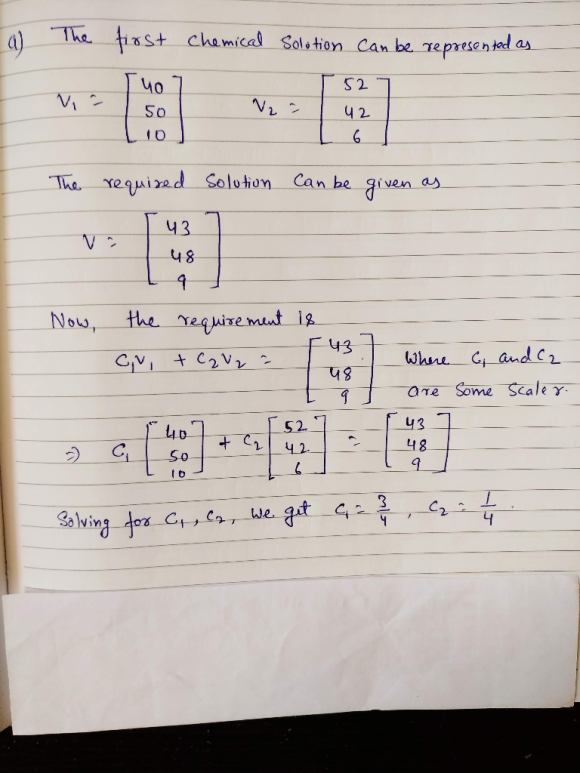 a) The first chemical Solution Can be represented as
V₁ = [40 50 10] V₂ = [52 42 6]
The required Solution Can be given as
V = [43 48 9]
Now, the requirement is
C₁V₁ + C₂V₂ = [43 48 9] Where C₁ and C₂
are Some Scaler.
⇒ C₁ [40 50 10] + C₂ [52 42 6] = [43 48 9]
Solving for C₁, C₂, We get C₁ = 3/4, C₂ = 1/4.